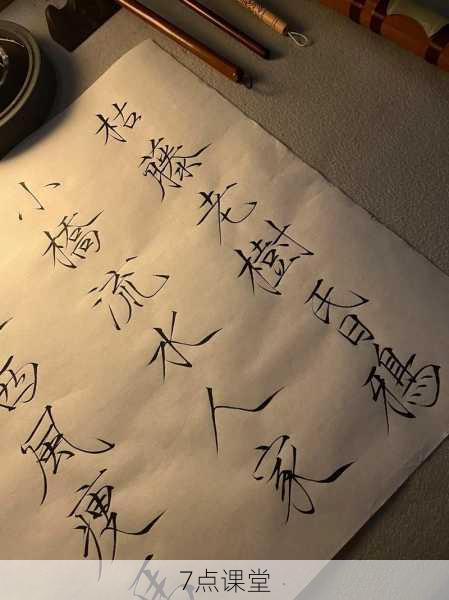 枯藤老樹昏鴉
小橋流水人家
西風瘦
7点课堂